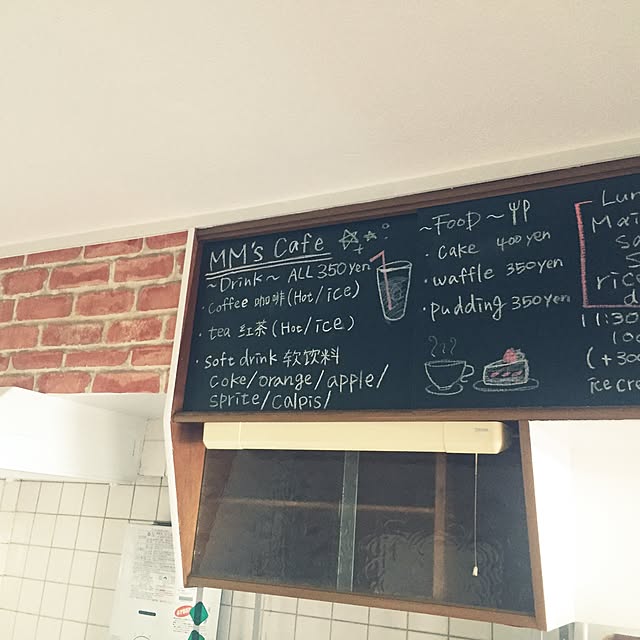 MM's Cafe
~Drink~ ALL 350yen
・Coffee 咖啡 (Hot/ice)
・tea 红茶 (Hot/ice)
・soft drink 软饮料
coke/orange/apple/
sprite/calpis/
~FooD~
・cake 400yen
・waffle 350yen
・pudding 350yen
Lun
Mai
Sa
S
rice
d
11:30
100
(+300
ice cre